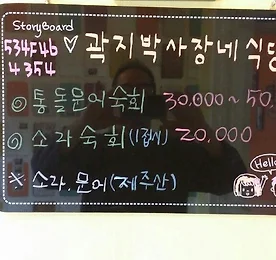 StoryBoard
534546
4354
곽지박사장네 식당
◎ 통돌문어숙회 30,000~50
◎ 소라숙회(1접시) 20,000
※ 소라.문어(제주산)
Hello